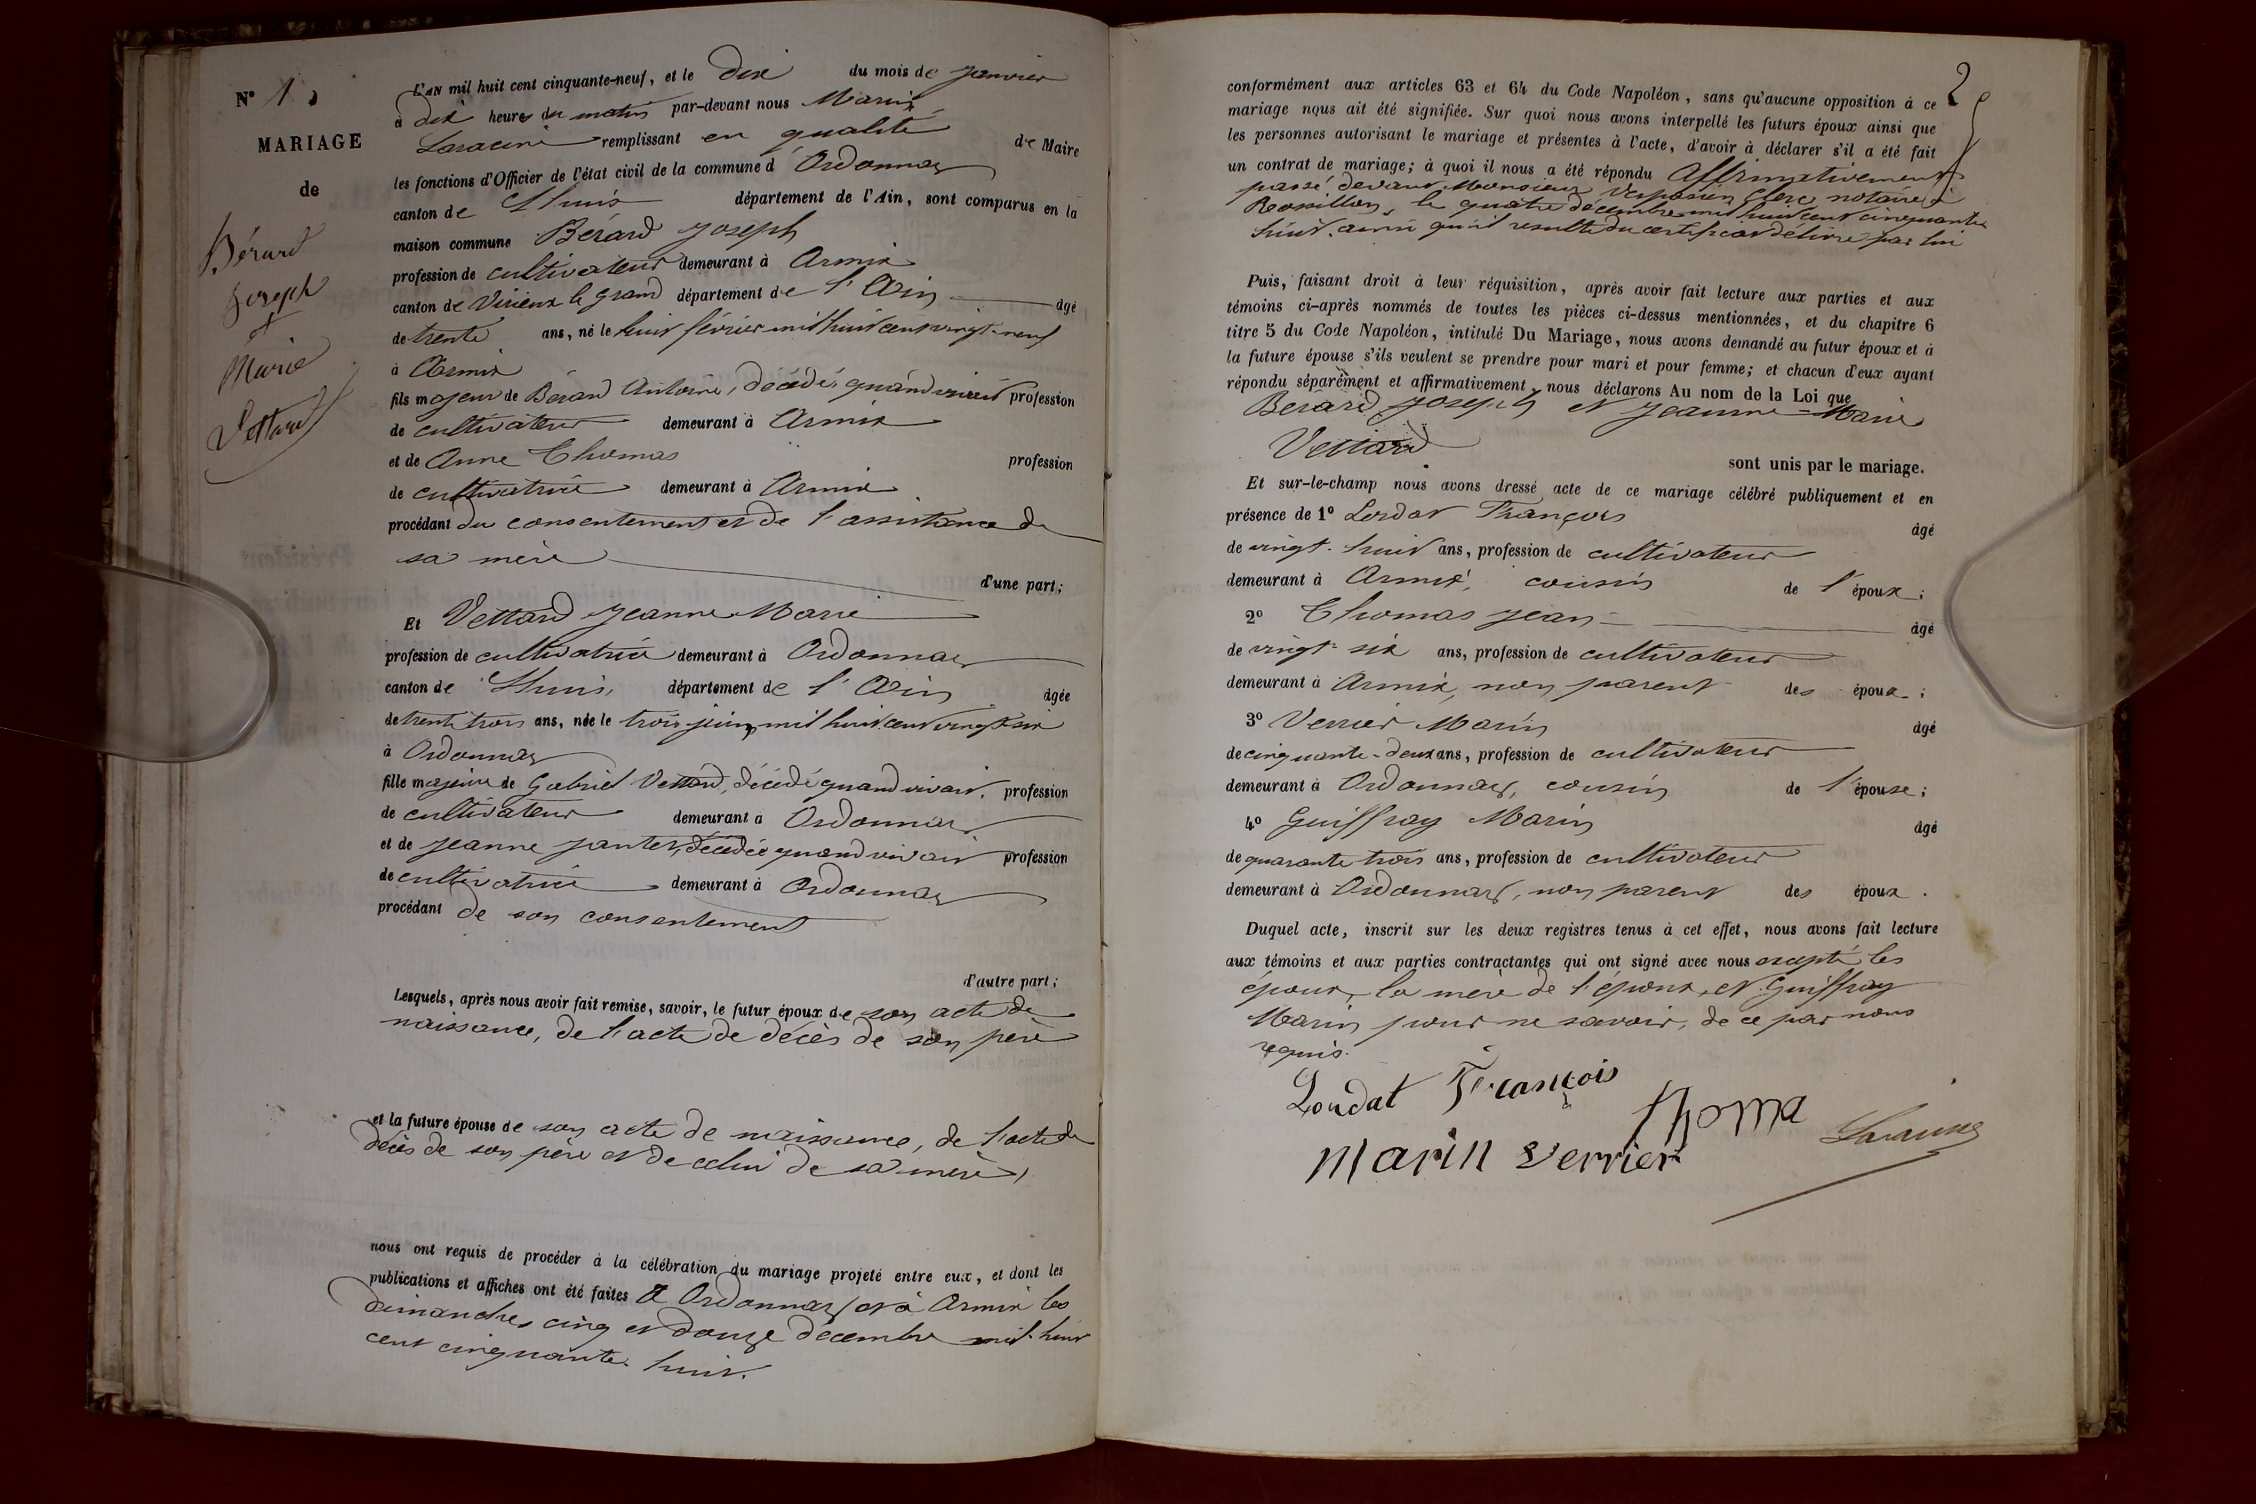 N° 1
MARIAGE
de
Bérard
Joseph
&
Marie
Vettard
L'AN mil huit cent cinquante-neuf, et le dix du mois de janvier
à dix heures du matin par-devant nous Marin
remplissant en qualité de Maire
les fonctions d'Officier de l'état civil de la commune d'Ordonnas
canton de Lhuis département de l'Ain, sont comparus en la
maison commune Bérard Joseph
profession de cultivateur demeurant à Armix
canton de Virieux le grand département de l'Ain âgé
de trente ans, né le huit février mil huit cent vingt-neuf
à Armix
fils majeur de Bérard Antoine, décédé, quand vivait profession
de cultivateur demeurant à Armix
et de Anne Thomas profession
de cultivatrice demeurant à Armix
procédant du consentement et de l'assistance de
sa mère
d'une part;
Et Vettard Jeanne Marie
profession de cultivatrice demeurant à Ordonnas
canton de Lhuis, département de l'Ain âgée
de trente trois ans, née le trois juin mil huit cent vingt-six
à Ordonnas
fille majeure de Gabriel Vettard, décédé quand vivait, profession
de cultivateur demeurant à Ordonnas
et de Jeanne, décédée quand vivait profession
de cultivatrice demeurant à Ordonnas
procédant de son consentement
d'autre part;
Lesquels, après nous avoir fait remise, savoir, le futur époux de son acte de
naissance, de l'acte de décès de son père
et la future épouse de son acte de naissance, de l'acte de
décès de son père et de celui de sa mère,
nous ont requis de procéder à la célébration du mariage projeté entre eux, et dont les
publications et affiches ont été faites à Ordonnas et à Armix les
dimanches cinq et douze décembre mil huit
cent cinquante-huit.
2
conformément aux articles 63 et 64 du Code Napoléon, sans qu'aucune opposition à ce
mariage nous ait été signifiée. Sur quoi nous avons interpellé les futurs époux ainsi que
les personnes autorisant le mariage et présentes à l'acte, d'avoir à déclarer s'il a été fait
un contrat de mariage; à quoi il nous a été répondu Affirmativement
passé devant Monsieur Vespasien Clerc notaire à
Rossillon, le quatre décembre mil huit cent cinquante
huit. ainsi qu'il resulte du certificat délivré par lui
Puis, faisant droit à leur réquisition, après avoir fait lecture aux parties et aux
témoins ci-après nommés de toutes les pièces ci-dessus mentionnées, et du chapitre 6
titre 5 du Code Napoléon, intitulé Du Mariage, nous avons demandé au futur époux et à
la future épouse s'ils veulent se prendre pour mari et pour femme; et chacun d'eux ayant
répondu séparément et affirmativement, nous déclarons Au nom de la Loi que
Bérard Joseph et Jeanne-Marie
Vettard
sont unis par le mariage.
Et sur-le-champ nous avons dressé acte de ce mariage célébré publiquement et en
présence de 1° Lordat François âgé
de vingt-huit ans, profession de cultivateur
demeurant à Armix, cousin de l'époux;
2° Thomas Jean âgé
de vingt six ans, profession de cultivateur
demeurant à Armix, non parent des époux;
3° Verrier Marin âgé
de cinquante-deux ans, profession de cultivateur
demeurant à Ordonnas, cousin de l'épouse;
4° Guiffray Marin âgé
de quarante trois ans, profession de cultivateur
demeurant à Ordonnas, non parent des époux.
Duquel acte, inscrit sur les deux registres tenus à cet effet, nous avons fait lecture
aux témoins et aux parties contractantes qui ont signé avec nous les
époux, la mère de l'époux, et Guiffray
Marin pour ne savoir, de ce par nous
requis.
Loudat François
Thoma
Marin Verrier